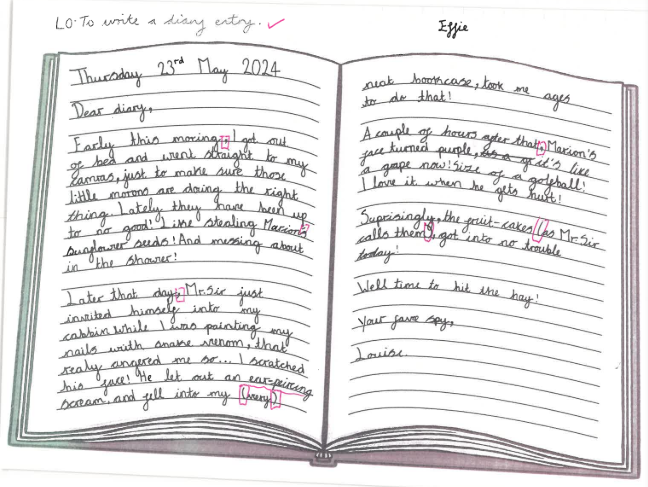 LO-To write a diary entry. ✓
Effie
Thursday 23rd May 2024
Dear diary,
Early this moring, I got out
of bed and went straight to my
canvas, just to make sure those
little morons are doing the right
thing. Lately they have been up
to no good! Like stealing Marion's
sunglower seeds! And messing about
in the shower!
Later that day, Mr.Sir just
invited himself into my
cabbin while I was painting my
nails with snake venom, that
realy angered me so... I scratched
his face! He let out an ear-peircing
scream, and fell into my (very)
neat bookcase, took me ages
to do that!
A couple of hours after that, Marion's
face turned purple, it's like
a grape now! Size of a golfball!
I love it when he gets hurt!
Suprisingly, the fruit-cakes (as Mr.Sir
calls them), got into no trouble
today!
Well time to hit the hay!
Your fave spy,
Louise.